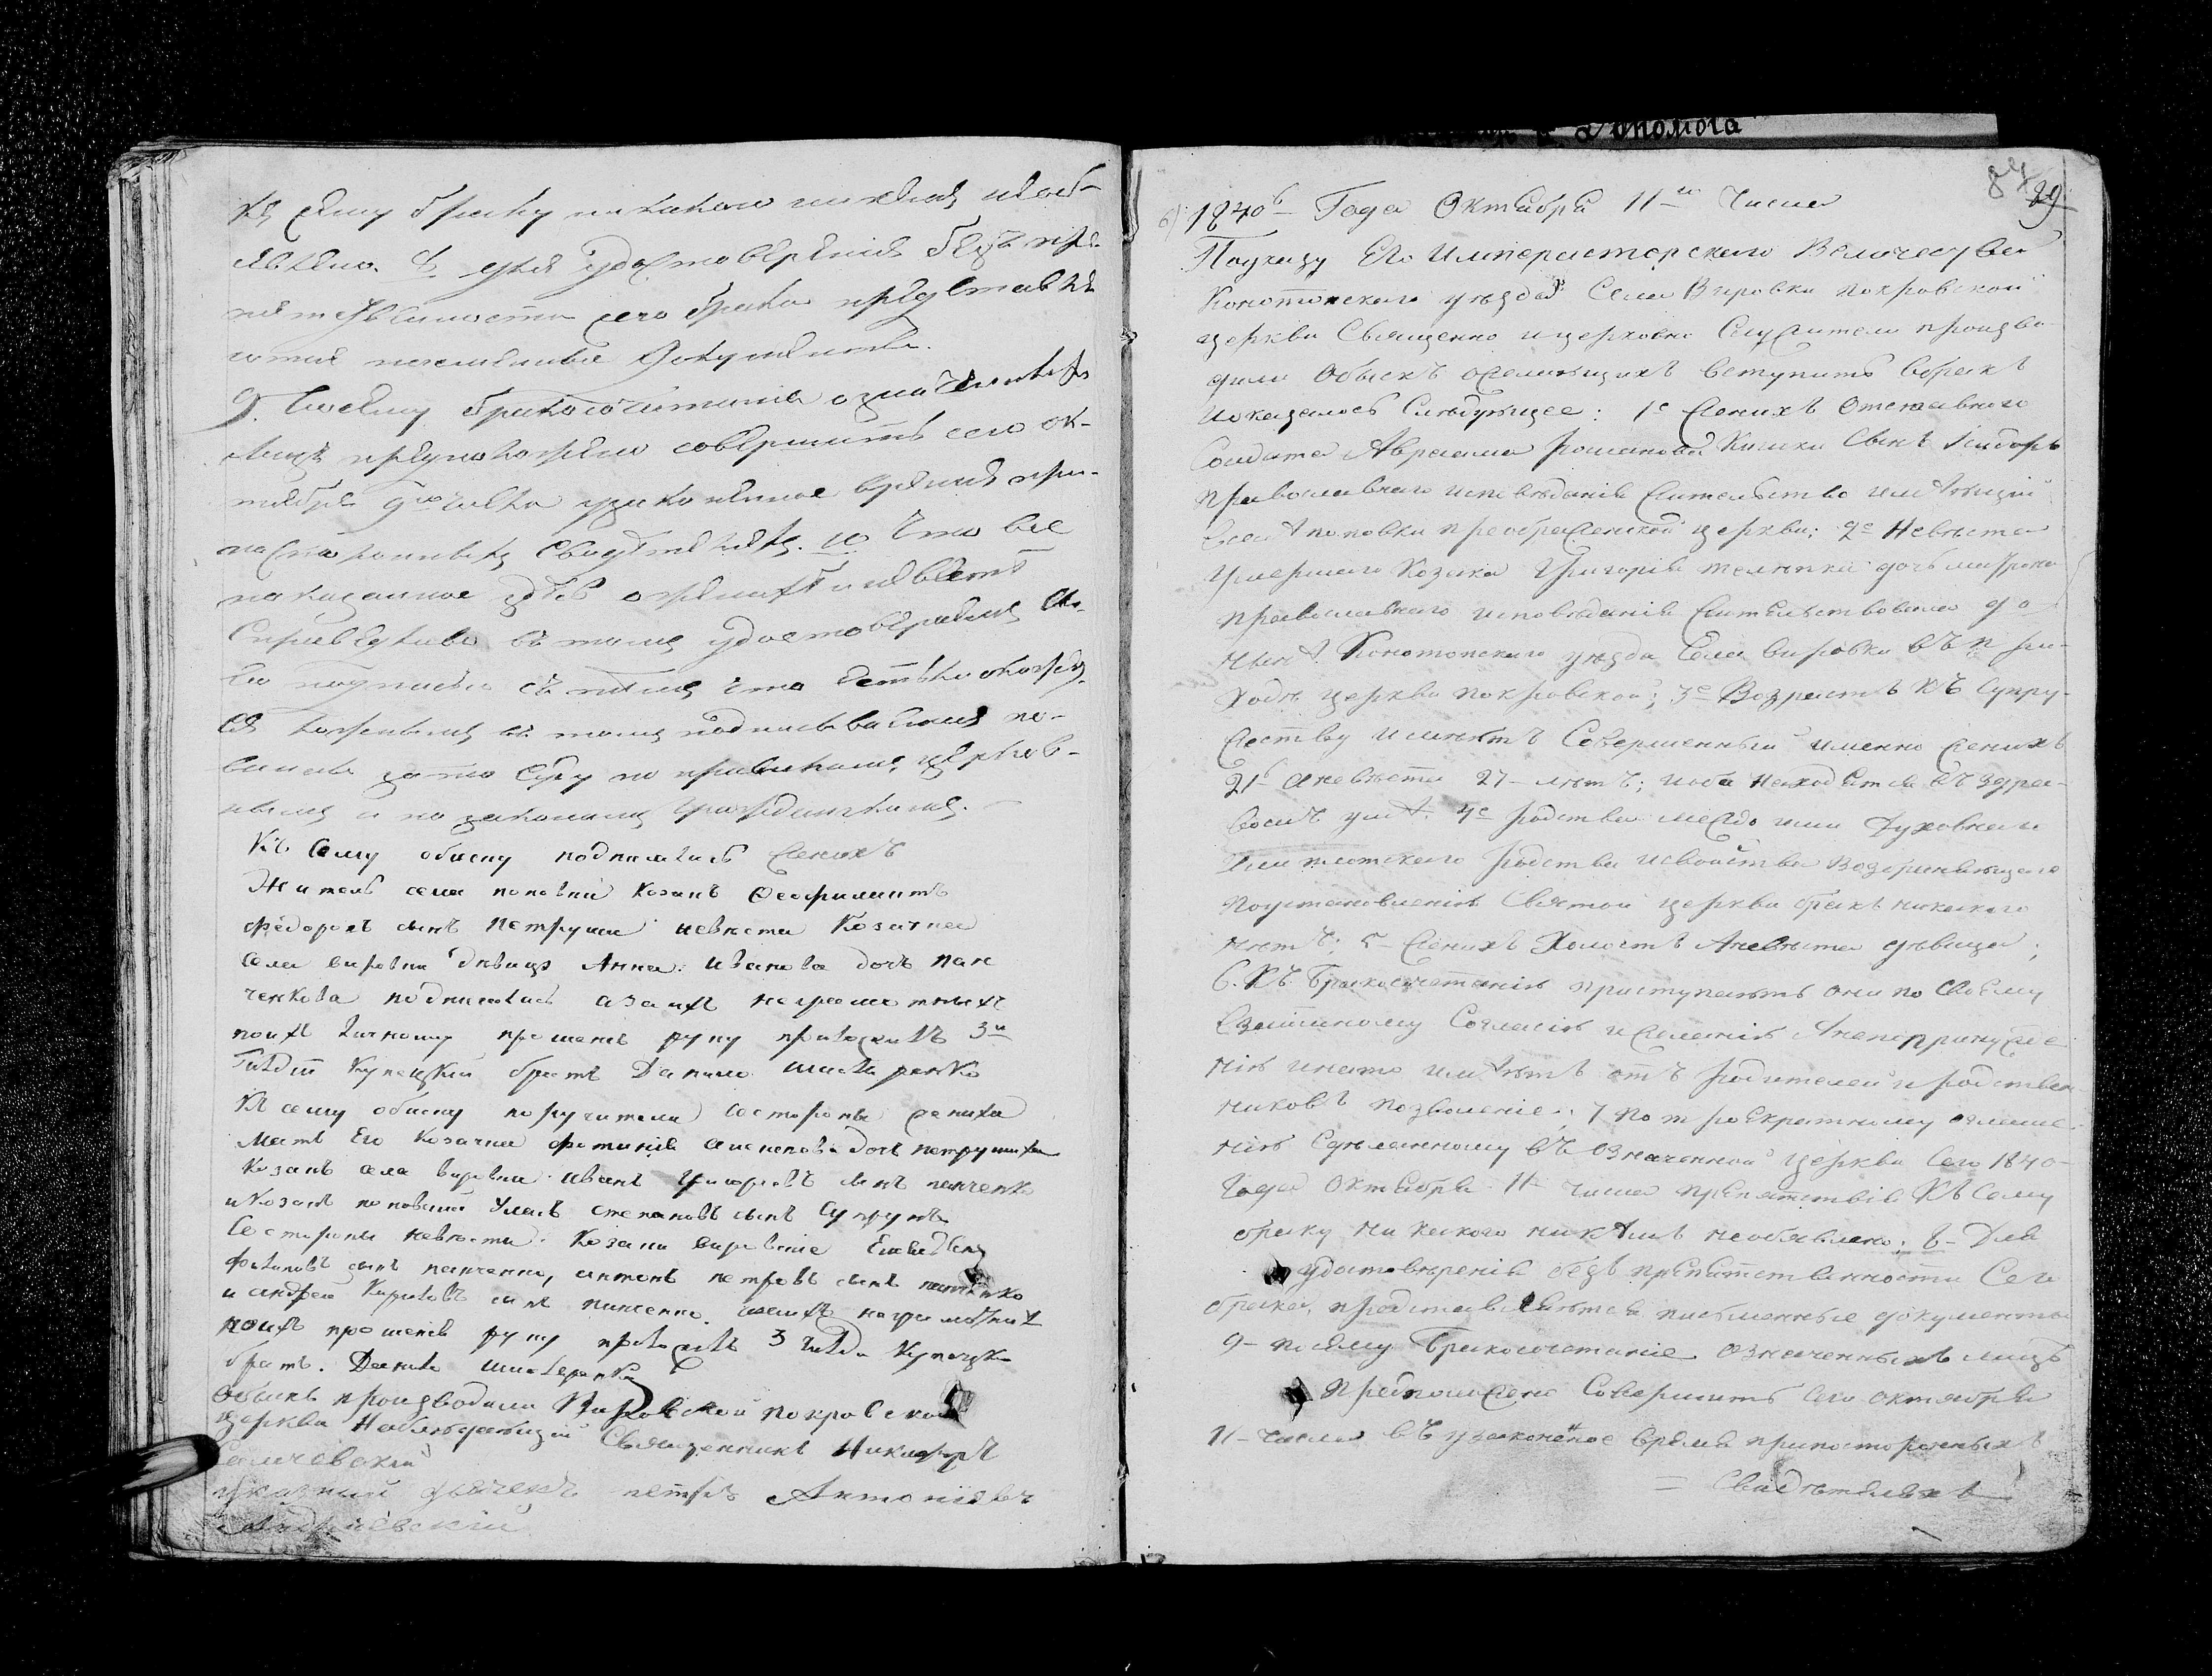 къ сему браку никакого никемъ необ-
явлено. 8. для удостоверения безъ пре-
пятственности сего брака представля
ютия писменные документы.
9. Посему бракосочитание означенныхъ
лицъ предположено совершить сего ок-
тября 9го числа узаконенное время при-
постороннихъ свидетеляхъ. 10 Что все
показанное здесь о женихе и невесте
справедливо въ томъ удостоверяемъ сво-
ею подписью съ темъ что естьли окажет
ся ложнымъ въ томъ подписывавшиися по-
винны за то суду по правиламъ церков-
нымъ и по законамъ гражданскимъ.
Къ Сему обыску подписались женихъ
Житель села поповки козакъ Феофилактъ
Федоровъ сынъ Петруша невеста Козачка
села вировки девица Анна Иванова дочь пан
ченкова подписались азаихъ неграмотныхъ
поихъ личному прошению руку приложилъ 3й
Гилдии Купецкий братъ Данило
Къ сему обыску поручители состороны жениха
Мать Его Козачка фотиния дочь петрушиха
Козакъ села вировки иванъ Григориевъ сынъ панченко
и Козакъ поповский Уласъ степановъ сынъ Супрунъ
Состороны невесты Козаки вировские
сынъ панченко, антонъ петровъ сынъ панченко
и андрей Кириловъ сынъ панченко. заихъ неграмотныхъ
поихъ прошению руку приложилъ 3 гилди Купецки
братъ. Данило
Обыскъ производили Вировской покровской
церкви Наблюдающий Священникъ Никифоръ
указный дячекъ петръ Антониевъ
Андриевский
84 29
6) 1840го Года Октября 11го Числа
Поуказу Его Императорского Величества
Конотопского уезда Села Вировки покровской
церкви Священно и церковно Служители произво
дили Обыскъ ожелающихъ вступить вбракъ
иоказалось Следующее: 1е Женихъ Отставного
Солдата Авраама Романова Кишки Сынъ Исидоръ
православнаго исповедания жительство имеющий
Села поповки преображенской церкви; 2е Невеста
умершаго Козака Григория телюпки дочь
православнаго исповедания жительствовала до
ныне Конотопского уезда Села вировки въ при-
ходе церкви покровской; 3е Возрастъ къ супру-
жеству имеютъ Совершенный именно женихъ
21 аневеста 27 летъ; иоба находятся въ здра-
вомъ уме. 4е родства между ими Духовнаго
или плотскаго родства исвойства возбраняющаго
поустановлению Святой церкви бракъ никакого
нетъ: 5 Женихъ Холостъ Аневеста девица;
6. Къ Бракосочетанию приступаютъ они по своему
взаимному Согласию и желанию Анепопринужде
нию инато имеютъ отъ родителей и родствен
никовъ позволение; 7 по троекратному оглаше
нию Сделанному въ означенной церкви Сего 1840
Года Октября 11 числа препятствия Къ Сему
браку никакого никемъ необявлено; 8 Для
удостоверения безъ препятственности Сего
брака, представляются писменные документы
9 посему Бракосочетание означенныхъ лицъ
предположено Совершить Сего октября
11 числа въ узаконеное время припостороннихъ
Свидетеляхъ